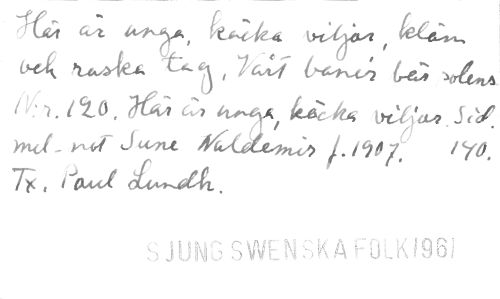 Här är unga, käcka viljor, kläm
och raska tag, Vårt banér bär solens
N:r. 120. Här är unga, käcka viljor. Sid.
mel-not Sune Waldemir f. 1907. 140.
Tx. Paul Lundh.
SJUNG SWENSKA FOLK 1961